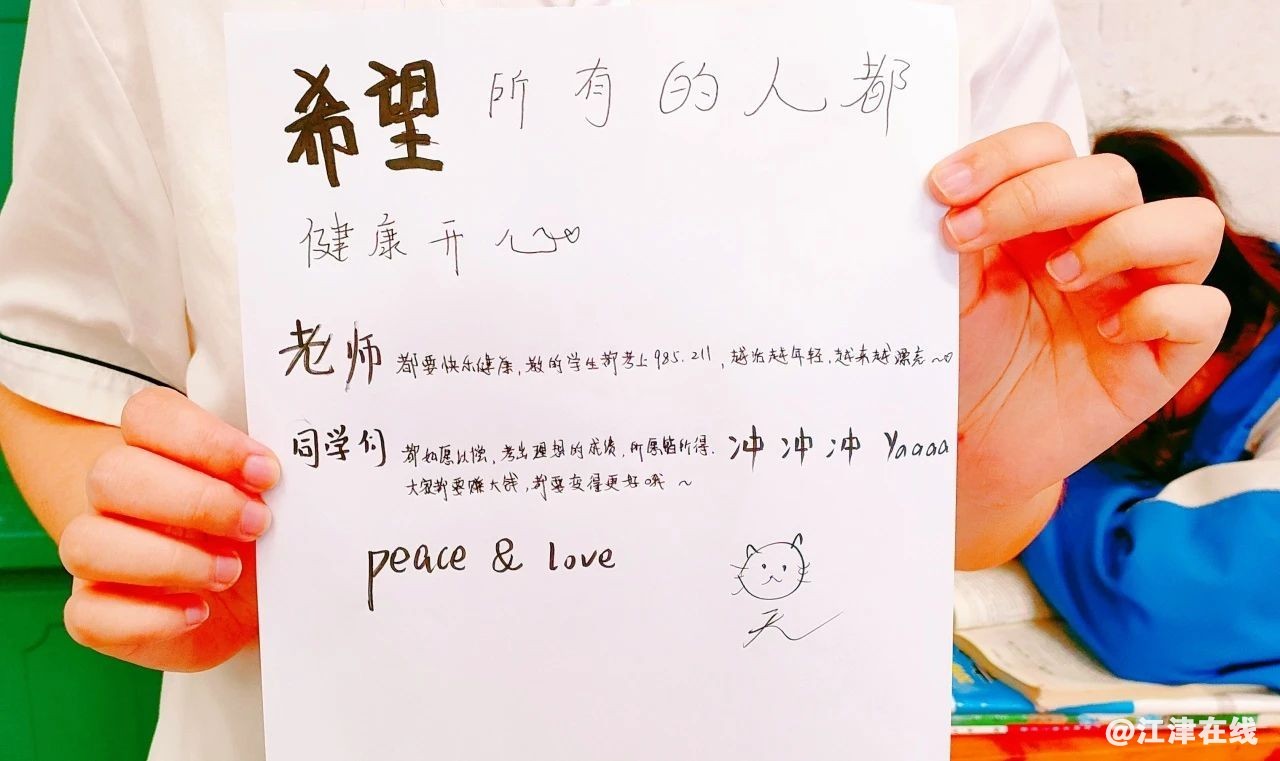 希望所有的人都
健康开心
老师都要快乐健康,教的学生都考上985.211,越活越年轻,越来越漂亮~
同学们都如愿以偿,考出理想的成绩,所愿皆所得.冲冲冲 Yaaaa
大家都要赚大钱,都要变得更好哦~
peace & love
天
@江津在线